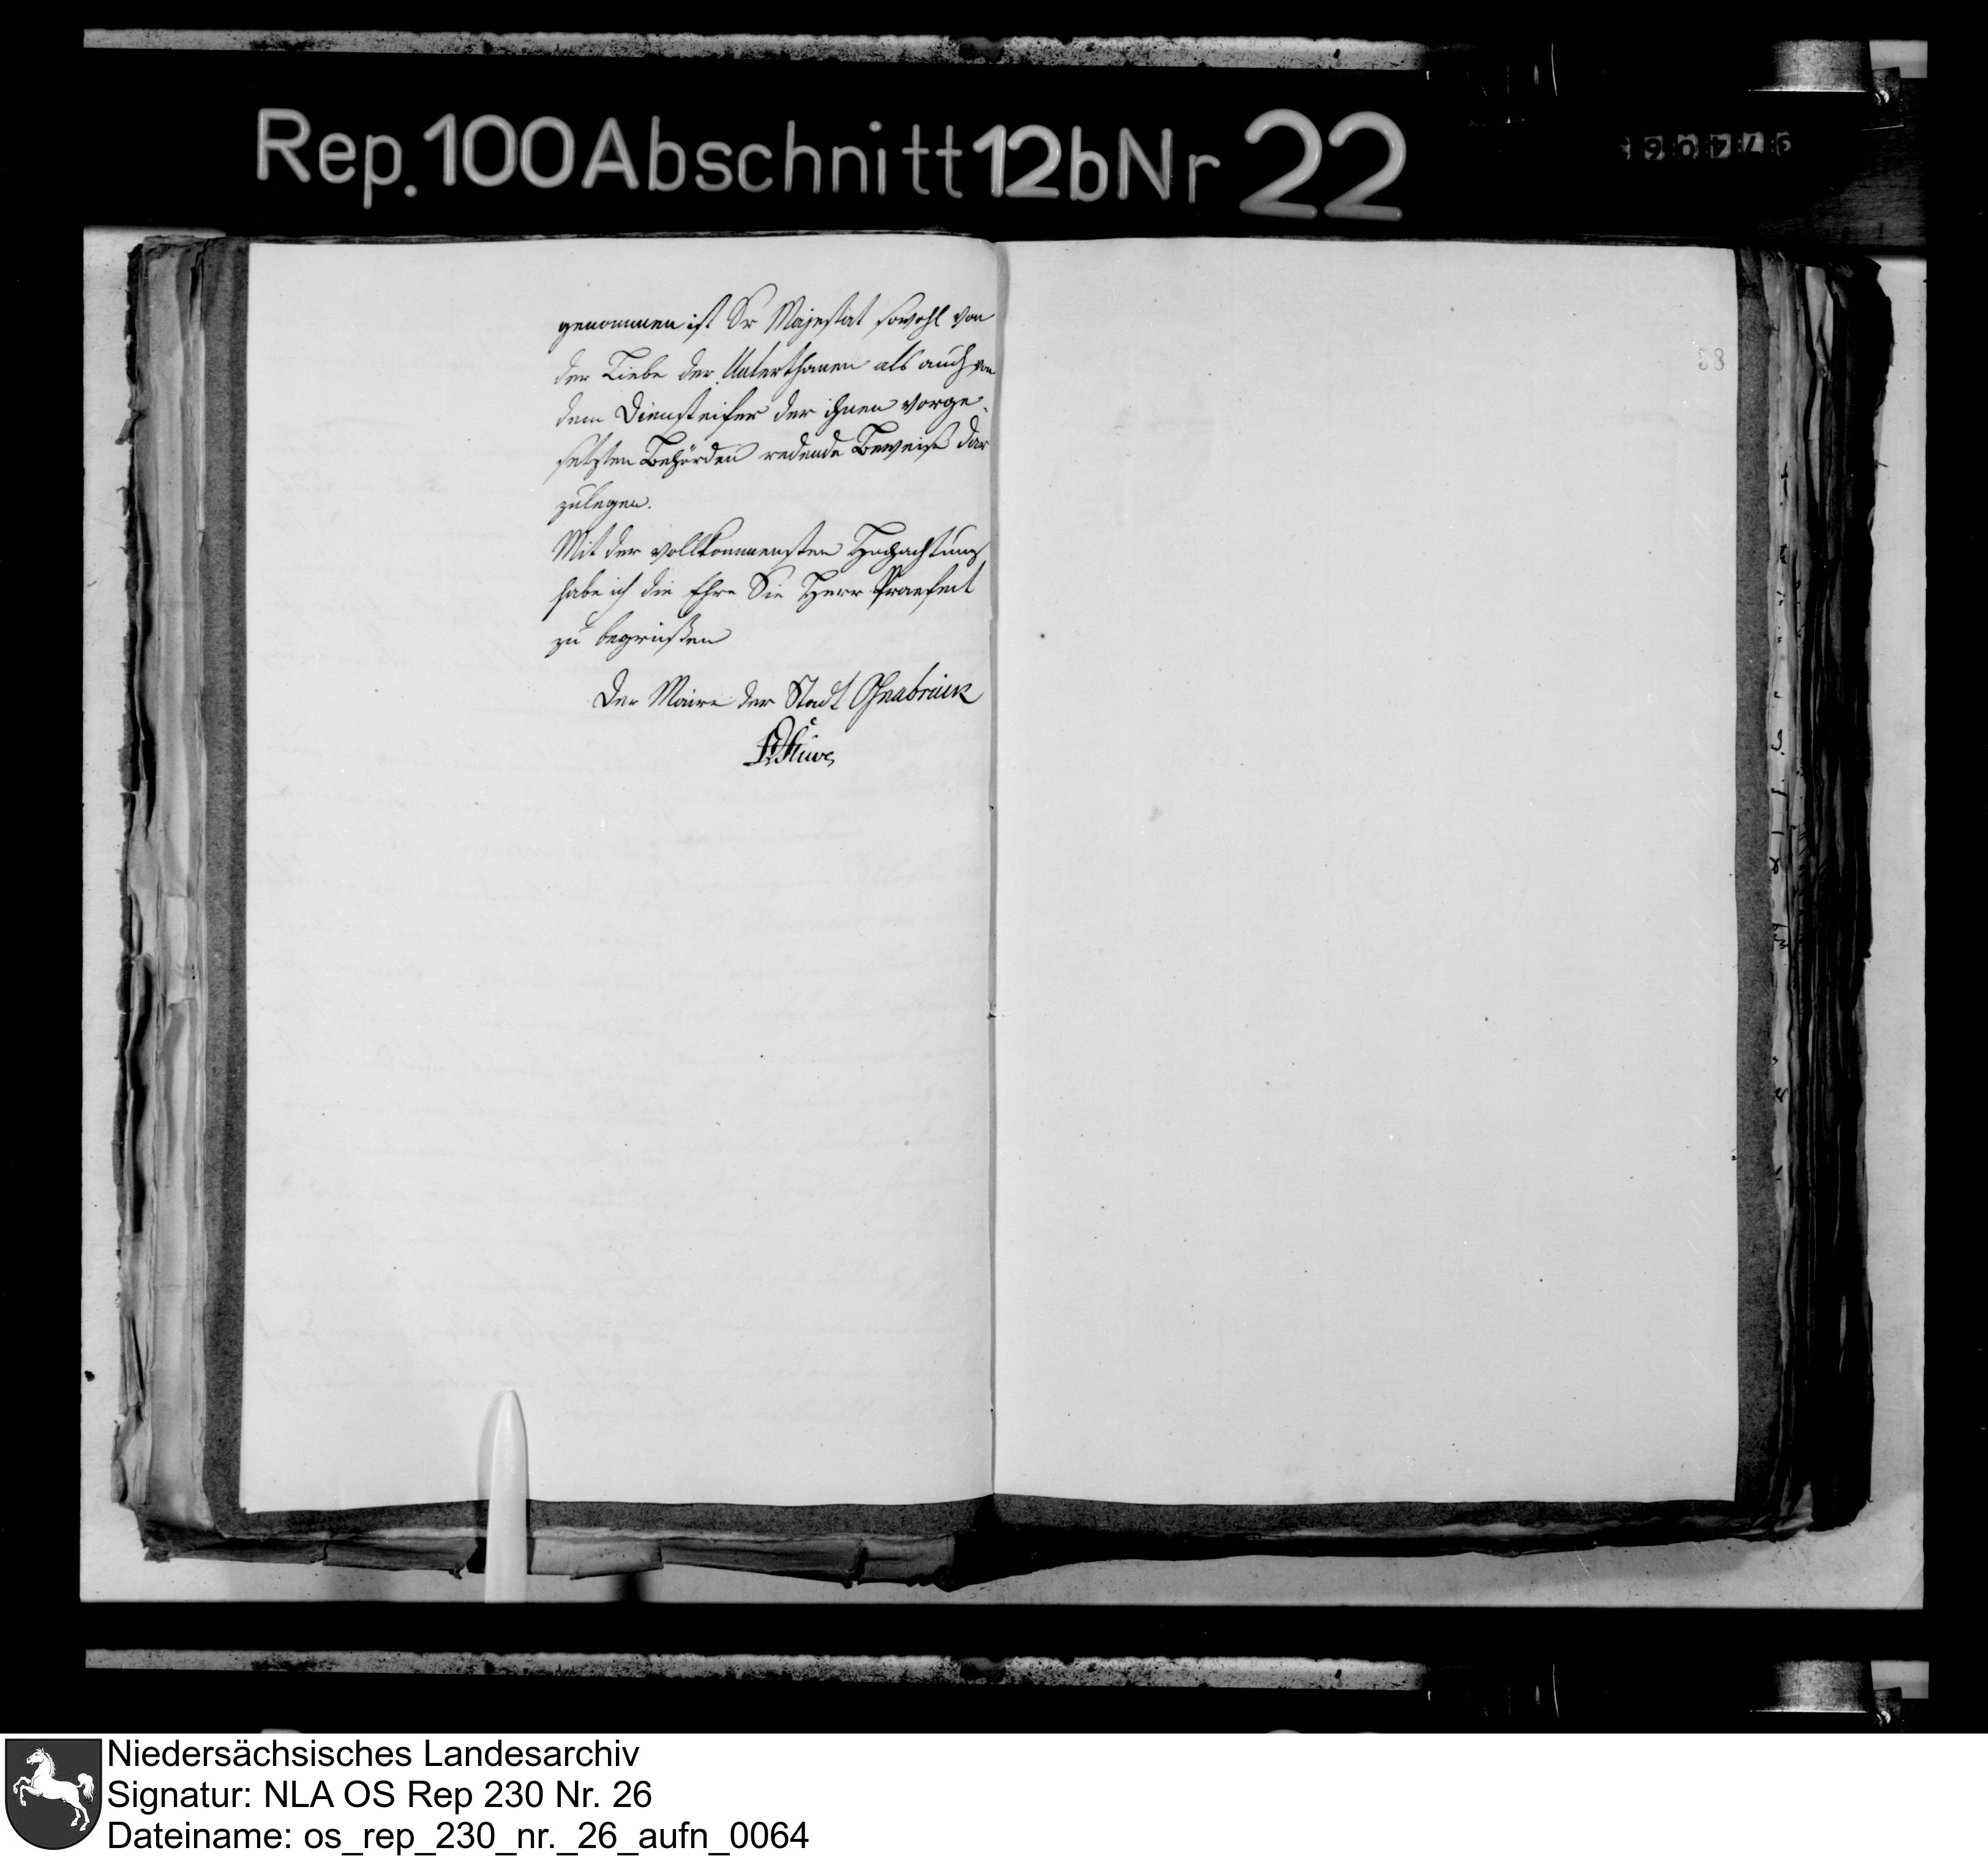 Rep. 100 Abschnitt 12b Nr 22
genommen ist Sr Majestat sowohl von
der Liebe der Unterthanen als auch von
dem Diensteifer der ihnen vorge-
setzten Behörden redende Beweise dar
zulegen.
Mit der vollkommensten Hochachtung
habe ich die Ehre Sie Herr Praefect
zu begrüßen
Der Maire der Stadt Osnabrück
Stüve
58
Niedersächsisches Landesarchiv
Signatur: NLA OS Rep 230 Nr. 26
Dateiname: os_rep_230_nr._26_aufn_0064